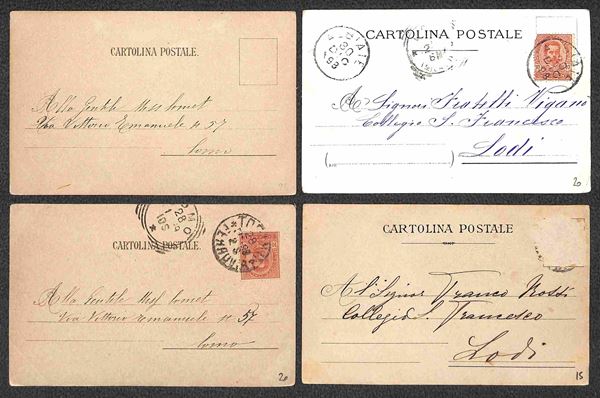 CARTOLINA POSTALE.
Alla Gentile Miss Comet
Via Vittorio Emanuele N 57
Como
CARTOLINA POSTALE
A Signori Fratelli Viganò
Collegio S. Francesco
Lodi
20
CARTOLINA POSTALE.
Alla Gentile Miss Comet
Via Vittorio Emanuele N 57
Como
20
CARTOLINA POSTALE
Al Signor Franco Rossi
Collegio S. Francesco
Lodi
15